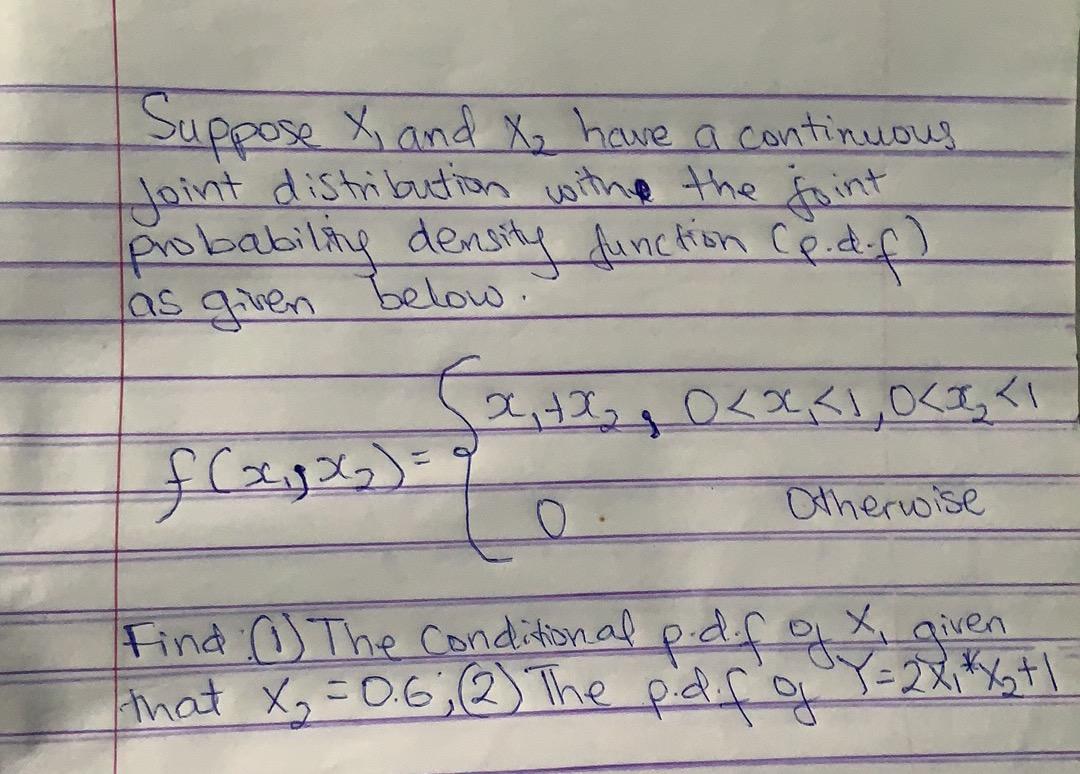 Suppose X₁ and X₂ have a continuous
joint distribution with the joint
probability density function (p.d.f)
as given below.
f(x₁,x₂) = { x₁+x₂, 0<x₁<1, 0<x₂<1
0. Otherwise
Find: (1) The Conditional p.d.f of X₁ given
that X₂ = 0.6; (2) The p.d.f of Y=2X₁*X₂+1